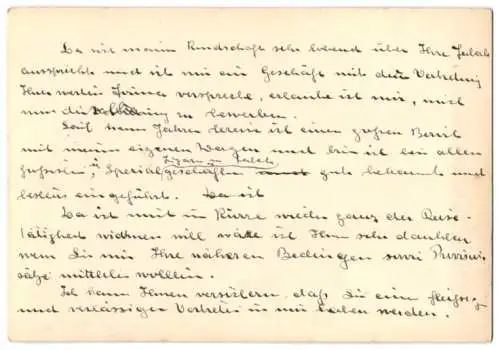 Da wir meine Kundschaft sehr lobend über Ihre Fabrikate
ausspricht und ich mir ein Geschäft mit der Vertretung
Ihrer werten Firma verspreche, erlaube ich mir, mich
um die zu bewerben.
Seit Jahren bereise ich einen großen Bezirk
mit meinem eigenen Wagen und bin ich bei allen
Zigarren u. Tabak
größeren u. Spezialgeschäften gut bekannt und
bestens eingeführt. Da ich
Da ich mich in Kürze wieder ganz der Reise-
tätigkeit widmen will wäre ich Ihnen sehr dankbar
wenn Sie mir Ihre näheren Bedingungen sowie Provisions-
sätze mitteilen wollten.
Ich kann Ihnen versichern, daß Sie einen fleißigen
und verlässigen Vertreter in mir haben werden.